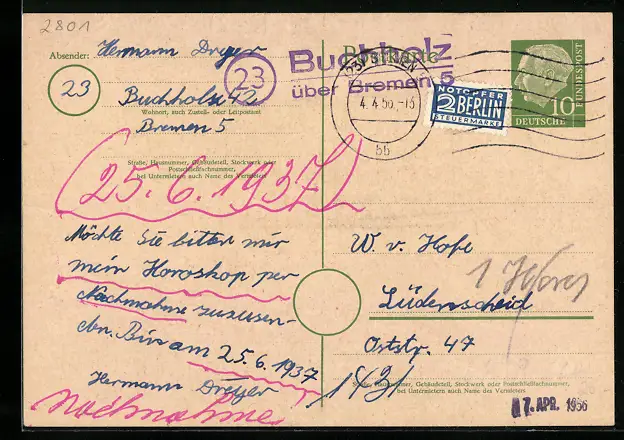 2801
Absender: Hermann Dreyer
23
23
Buchholz 42
Wohnort, auch Zustell- oder Leitpostamt
Bremen 5
Straße, Hausnummer, Gebäudeteil, Stockwerk oder
Postschließfachnummer,
bei Untermietern auch Name des Vermieters
(25.6.1937)
Möchte Sie bitte mir
mein Horoskop per
Nachnahme zuzusen-
den. Bin am 25.6.1937
Hermann Dreyer
Nachnahme
Postkarte
Buchholz
über Bremen 5
4.4.56.-13
bb
NOTOPFER
2 BERLIN
STEUERMARKE
10
DEUTSCHE
BUNDESPOST
W. v. Hofe
1 Horos
Lüdenscheid
Oststr. 47
Straße, Hausnummer, Gebäudeteil, Stockwerk oder Postschließfachnummer,
bei Untermietern auch Name des Vermieters
17. APR. 1956